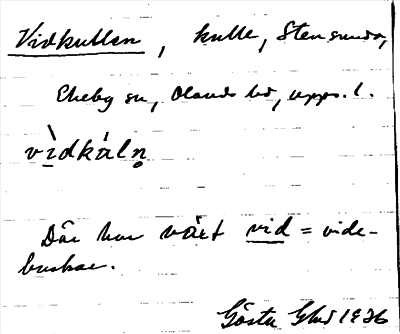 Vidkullen, kulle, Stensunda,
Ekeby sn, Olands hd, Upps. l.
vìdkàln̥
Där har växt vid = vide-
buskar.
Gösta 1926